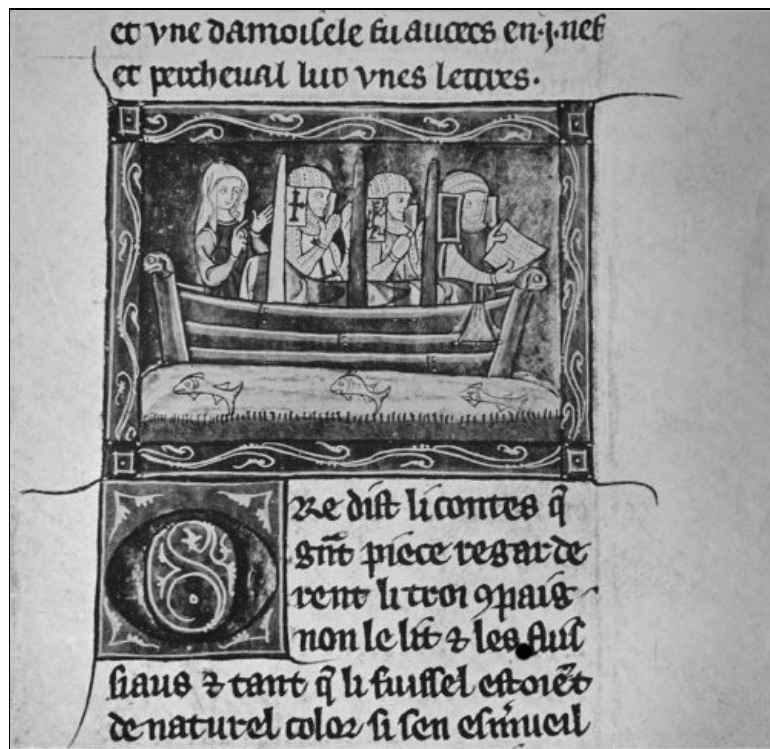 et vne damoisele fu auoecs en .j. nef
et percheual luit vnes lettres.
Ore dist li contes q̃
gñt piece regarde
rent li troi ꝯpaig
non le lit ⁊ les fuis
siaus ⁊ tant q̃ li fuissel estoiẽt
de naturel color si sen esm̃ueil